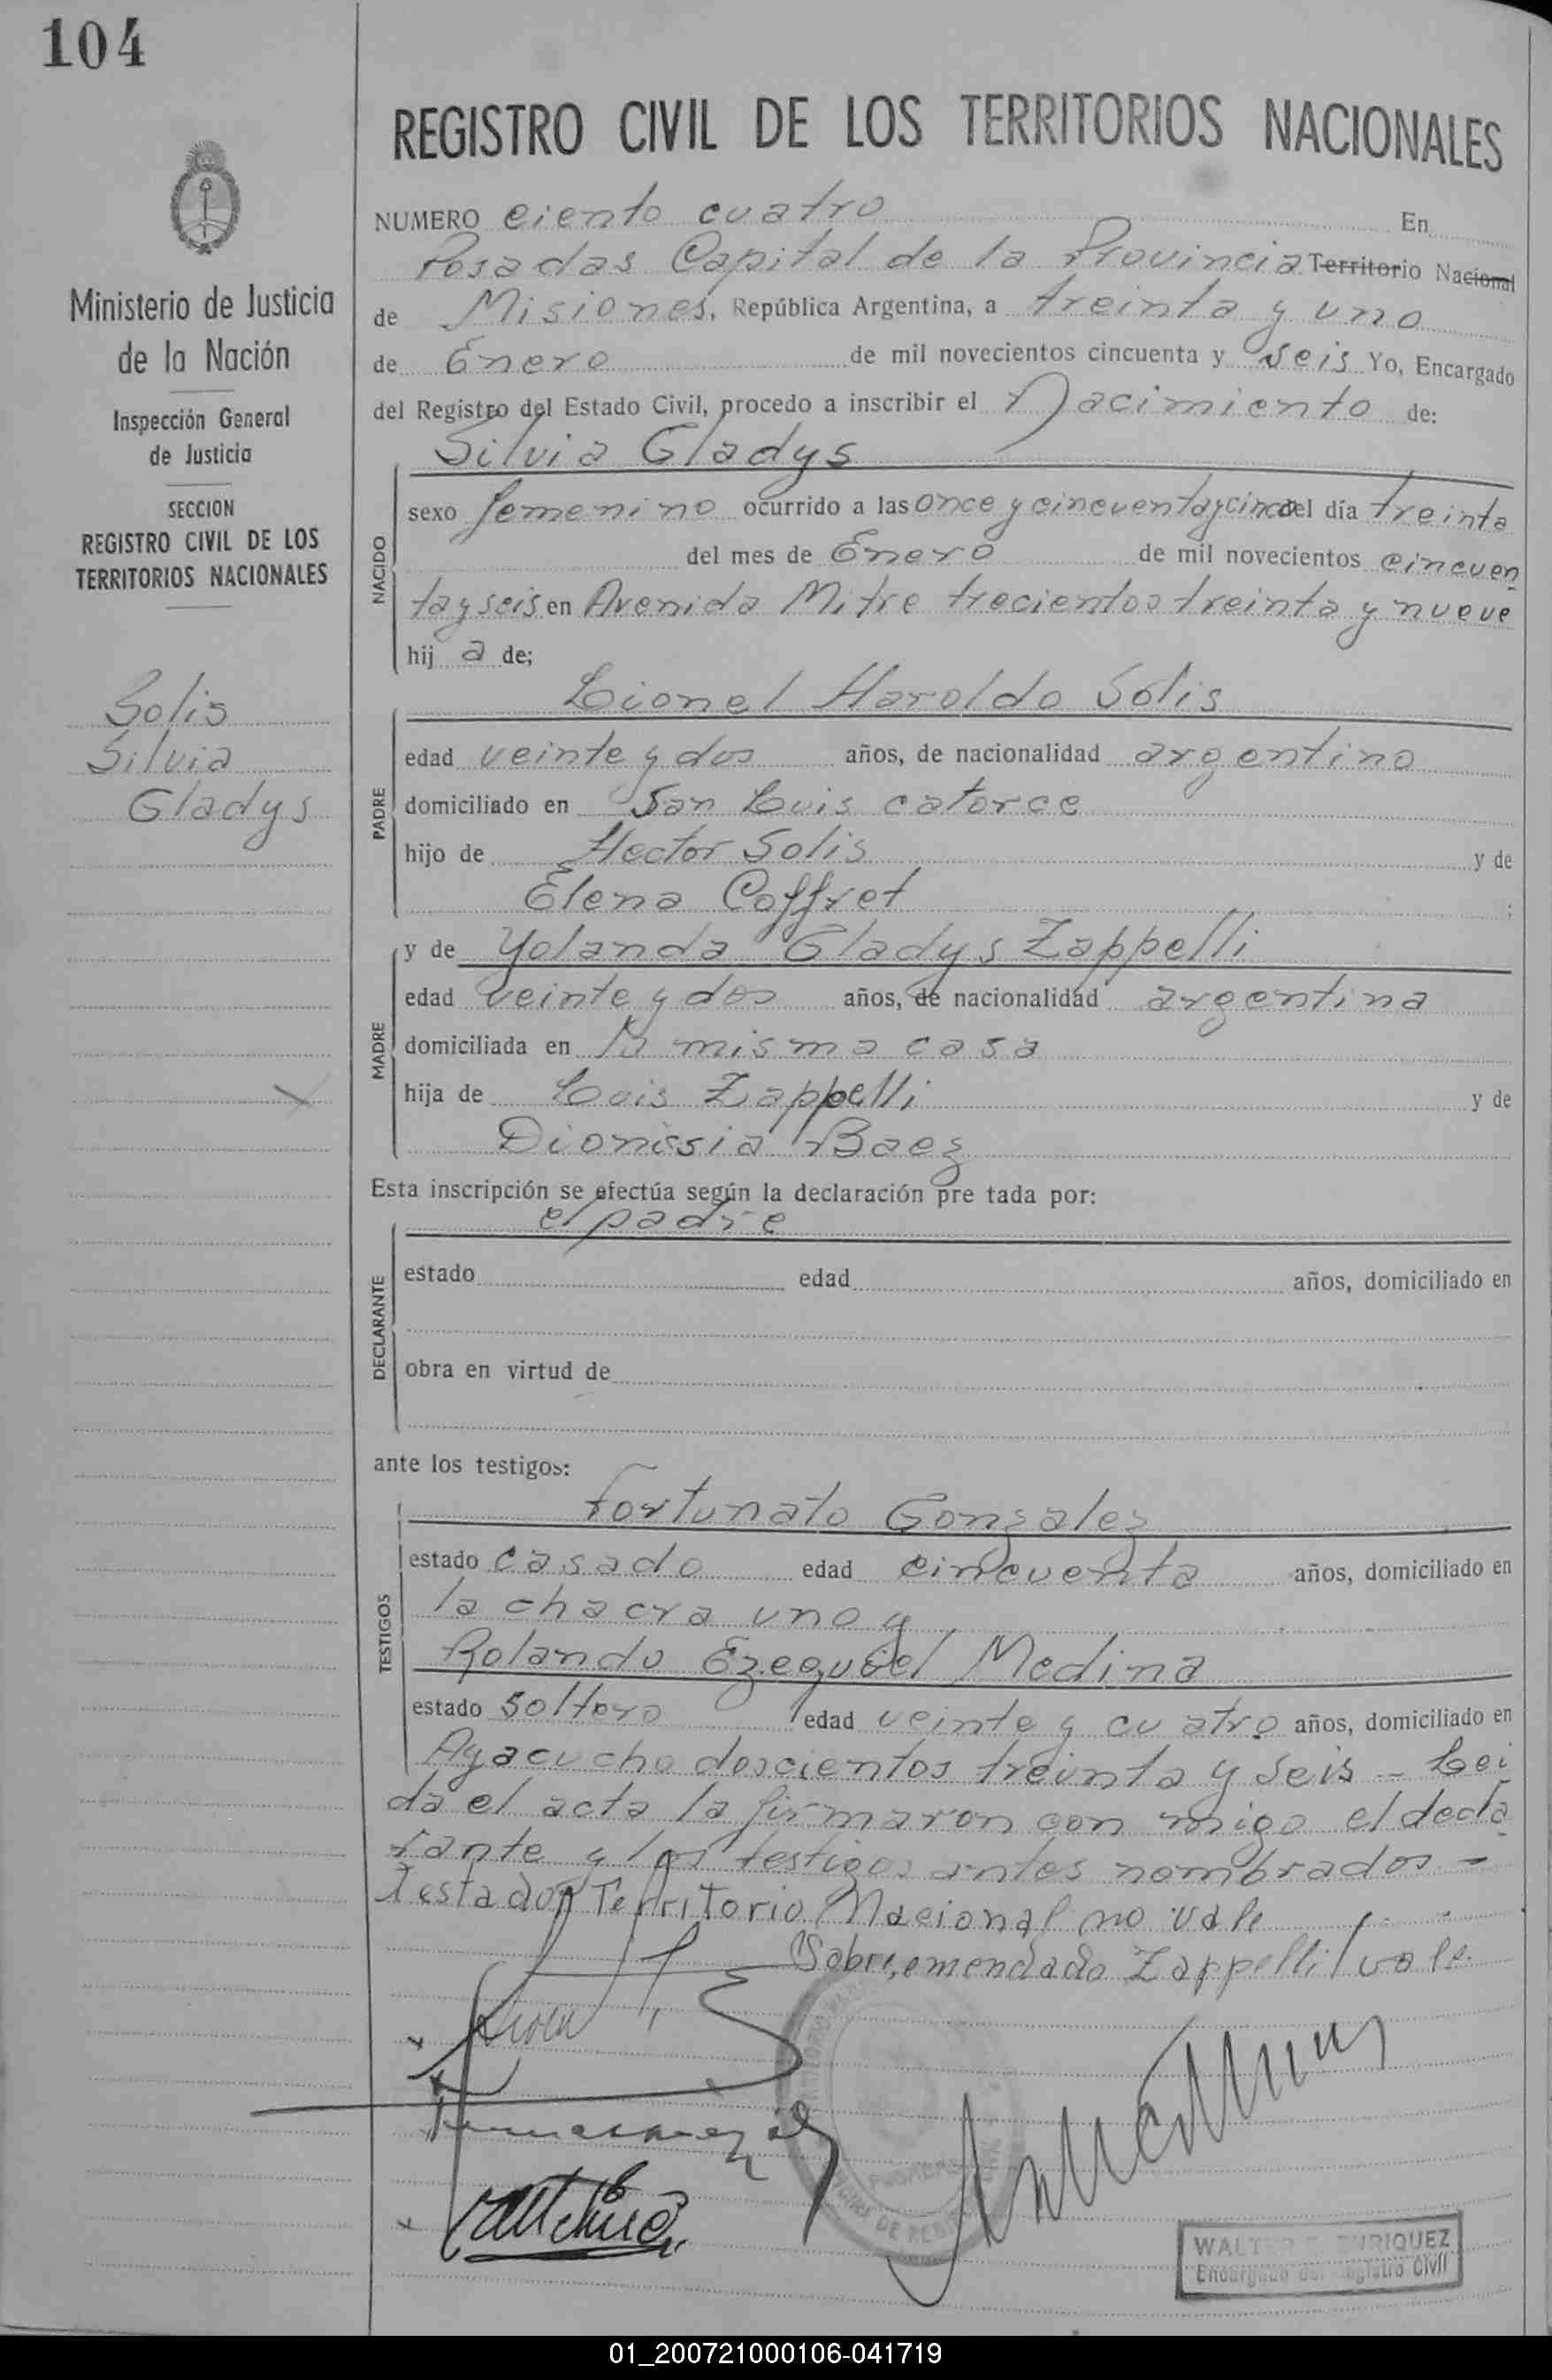 104
REGISTRO CIVIL DE LOS TERRITORIOS NACIONALES
Ministerio de Justicia
de la Nación
Inspección General
de Justicia
SECCION
REGISTRO CIVIL DE LOS
TERRITORIOS NACIONALES
Solis
Silvia
Gladys
NUMERO ciento cuatro En
Posadas Capital de la Provincia Territorio Nacional
de Misiones, República Argentina, a treinta y uno
de Enero de mil novecientos cincuenta y seis Yo, Encargado
del Registro del Estado Civil, procedo a inscribir el Nacimiento de:
Silvia Gladys
NACIDO
sexo femenino ocurrido a las once y cincuenta y cinco del día treinta
del mes de Enero de mil novecientos cincuen
ta y seis en Avenida Mitre trecientos treinta y nueve
hij a de;
Lionel Haroldo Solis
PADRE
edad veinte y dos años, de nacionalidad argentino
domiciliado en San Luis catorce
hijo de Hector Solis y de
Elena Coffret ;
MADRE
y de Yolanda Gladys Zappelli
edad veinte y dos años, de nacionalidad argentina
domiciliada en la misma casa
hija de Luis Zappelli y de
Dionisia Baez
Esta inscripción se efectúa según la declaración pre tada por:
el padre
DECLARANTE
estado edad años, domiciliado en
obra en virtud de
ante los testigos:
Fortunato Gonzalez
TESTIGOS
estado casado edad cincuenta años, domiciliado en
la chacra uno y
Rolando Ezequiel Medina
estado soltero edad veinte y cuatro años, domiciliado en
Ayacucho doscientos treinta y seis - Lei
da el acta la firmaron con migo el decla
rante y los testigos antes nombrados -
Testador Territorio Nacional no vale
Sobre, emendado Zappelli vale
POSADAS
WALTER ENRIQUEZ
Encargado del Registro Civil
01_200721000106-041719